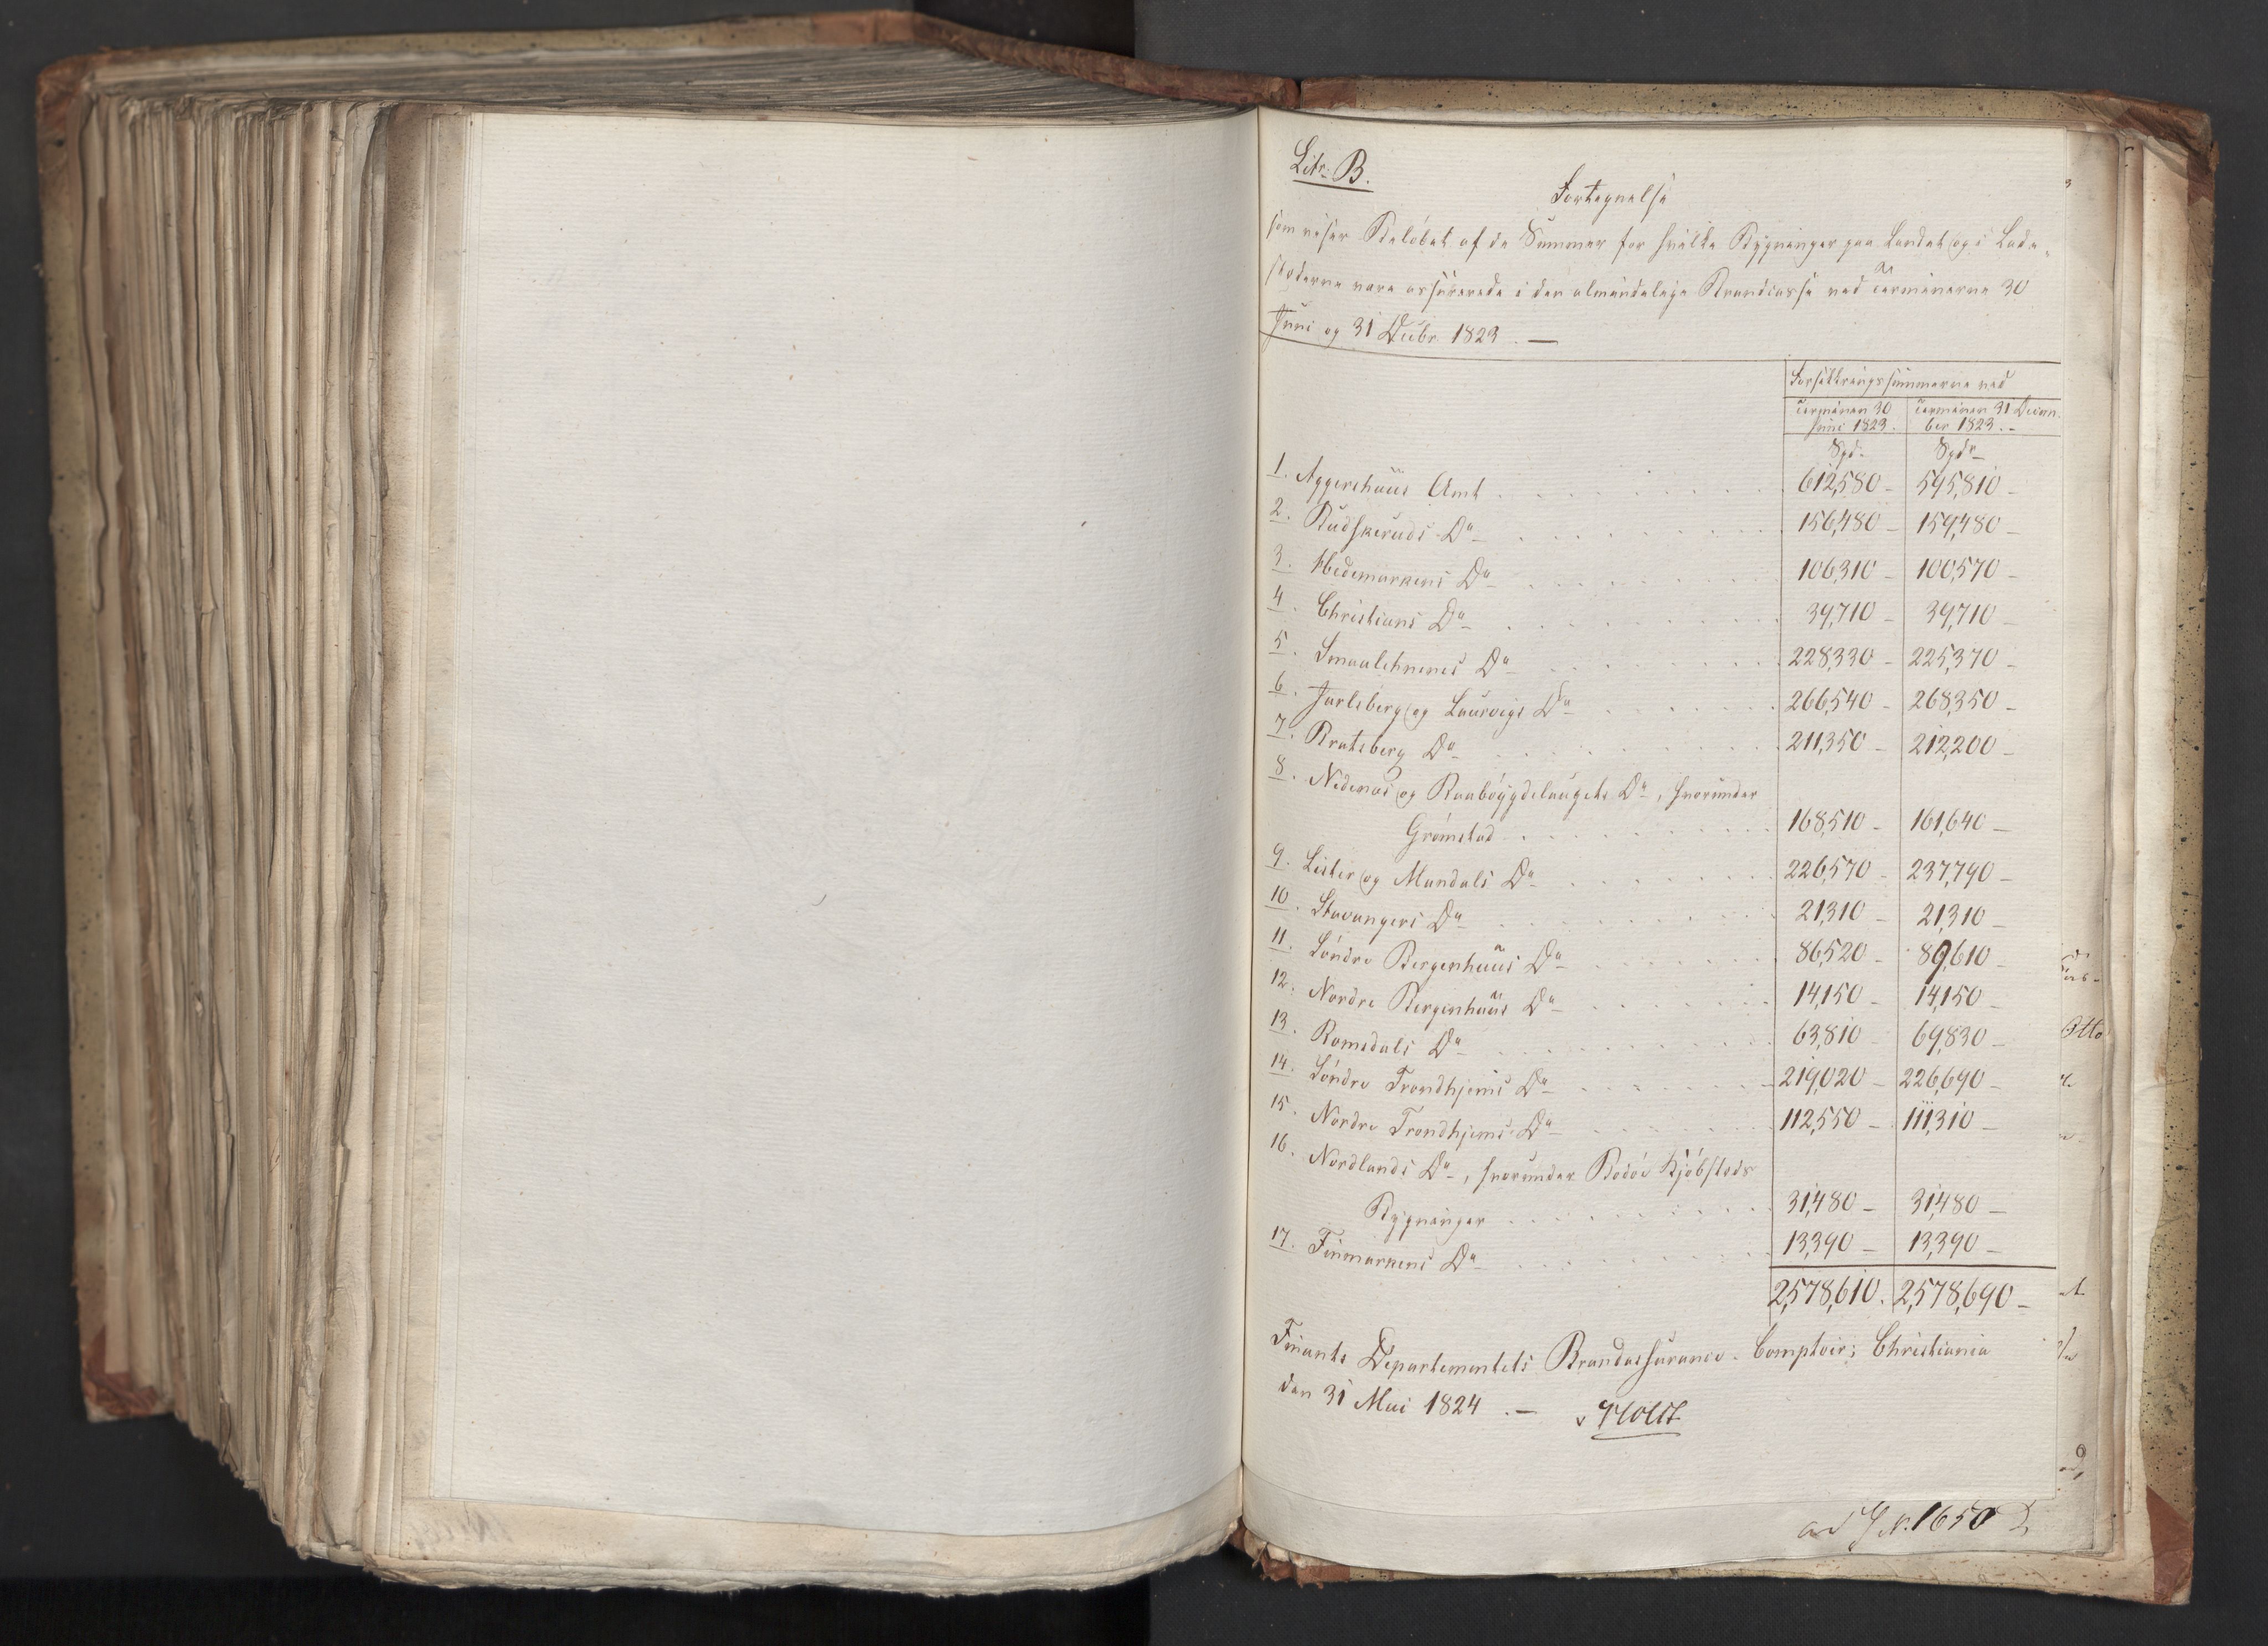 Litr. B.
Fortegnelse
som viser Beløbet af de Summer for hvilke Bygninger paa Landet og i Lade-
stæderne vare assurerede i den almindelige Brandcasse ved Terminerne 30
Juni og 31 Decbr 1823. —
Forsikkringssummerne ved
Terminen 30 Juni 1823. Terminen 31 Decem-
ber 1823. -
Spd. Spdr
1. Aggershuus Amt . . . 612,580 - 595,810 -
2. Budskeruds Do . . . 156,480 - 159,480 -
3. Hedemarkens Do . . . 106,310 - 100,570 -
4. Christians Do . . . 39,710 - 39,710 -
5. Smaalehnenes Do . . . 228,330 - 225,370 -
6. Jarlsberg og Laurvigs Do . . . 266,540 - 268,350 -
7. Bratsberg Do . . . 211,350 - 212,200 -
8. Nedenæs og Raabøygdelaugets Do, hvorunder
Grømstad . . . 168,510 - 161,640 -
9. Lister og Mandals Do . . . 226,570 - 237,790 -
10. Stavangers Do . . . 21,310 - 21,310 -
11. Søndre Bergenhuus Do . . . 86,520 - 89,610 -
12. Nordre Bergenhuus Do . . . 14,150 - 14,150 -
13. Romsdals Do . . . 63,810 69,830 -
14. Søndre Trondhjems Do . . . 219,020 - 226,690 -
15. Nordre Trondhjems Do . . . 112,550 - 111,310 -
16. Nordlands Do, hvorunder Bodøe Kjøbsteds
Bygninger . . . 31,480 - 31,480 -
17. Finmarkens Do . . . 13,390 - 13,390 -
2,578,610. 2,578,690 -
Finants Departementets Brandassurance-Comptoir; Christiania
den 31 Mai 1824. — Holst
Otto
ad J N. 1650